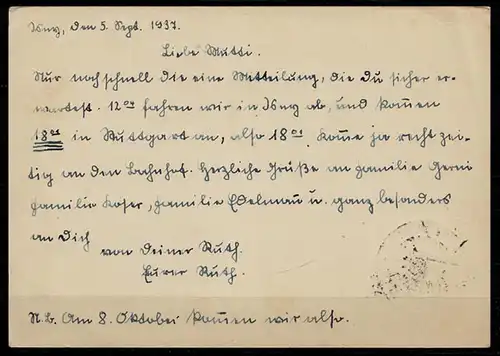 Isny, den 5. Sept. 1937.
Liebe Mutti.
Nur noch schnell die eine Mitteilung, die du sicher er-
wartest. 12⁰⁴ fahren wir in Isny ab, und kommen
18⁰¹ in Stuttgart an, also 18⁰¹. Komme ja recht zei-
tig an den Bahnhof. Herzliche Grüße an Familie
Familie Koser, Familie Edelmann u. ganz besonders
an Dich
von Deiner Ruth.
Eurer Ruth.
N.B. Am 8. Oktober kommen wir also.